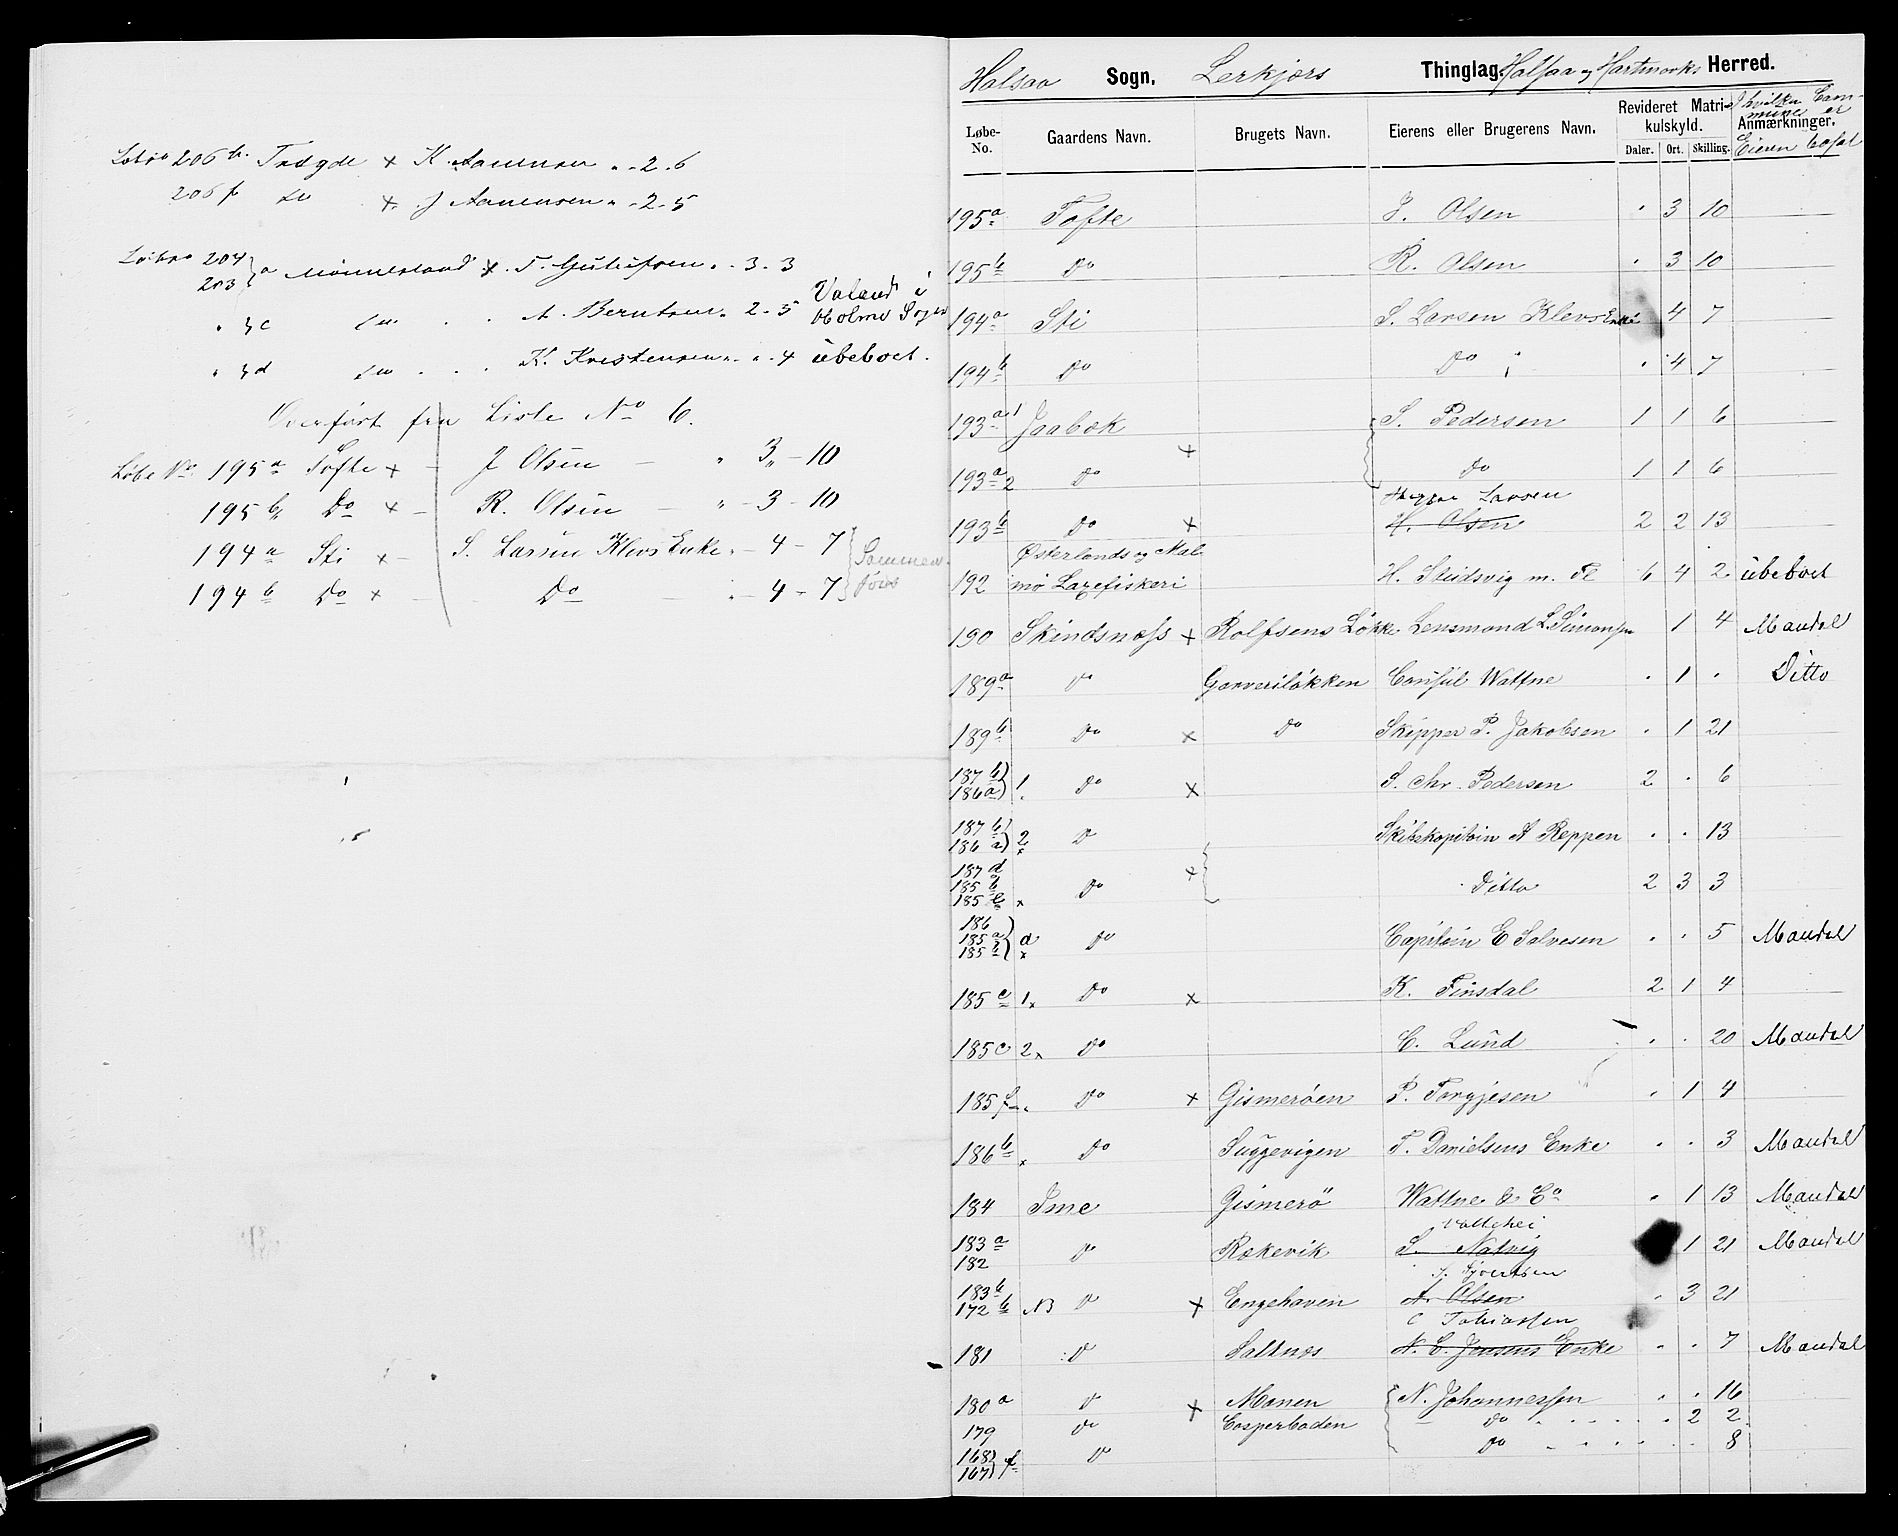 Løbno 206 b. Trægde × K. Aanensen „ - 2 - 6
206 f do × J Aanensen „ - 2 - 5
Løbno 204 203 } a Mønnesland × T. Gulufsen „ - 3 - 3
„ } c do . . A. Berntsen „ 2 - 5 Valand i Holme Sogn
„ } d do . . . K. Kristensen „ - „ - 4 ubeboet.
Overført fra Liste No 6.
Løbe No 195 a Tofte × - J Olsen - „ 3 „ - 10
195 b Do × - R. Olsen - „ - 3 - 10
194 a Sti × - S. Larsen Klevs Enke „ - 4 - 7 } Sammen-
194 b Do × - Do - „ - 4 - 7 } føres
Halsaa Sogn, Lerkjærs Thinglag Halsaa og Hartmarks Herred.
Løbe-No. Gaardens Navn. Brugets Navn. Eierens eller Brugerens Navn. Revideret Matrikulskyld. Daler. Ort. Skilling. Anmærkninger. I hvilken Commune er Eieren bosat
195 a Tofte J. Olsen „ 3 10
195 b Do R. Olsen „ 3 10
194 a Sti S. Larsen Klevs Enke 4 7
194 b Do Do „ „ 4 7
193 a 1 Jaabæk S. Pedersen 1 1 6
193 a 2 Do × Do 1 1 6
Larsen
193 b Do × H. Olsen 2 2 13
192 Østerlands og Malmø Laxefiskeri H. Studsvig m. Fl 6 4 2 ubeboet
190 Skindsnæss × Rolfsens Løkke Lensmand L. Simonsen 1 4 Mandal
189 a Do Garveriløkken Consul Wattne „ 1 „ Ditto
189 b Do × Do Skipper P. Jakobsen „ 1 21
187 b 186 a) 1. Do × S. Chr. Pedersen 2 „ 6
187 b 186 a) 2 × Do Skibskaptein A Reppen „ „ 13
187 d 185 b 185 e × Do × Ditto 2 3 3
186 185 a 185 b ) d × Do Captein E Salvesen „ „ 5 Mandal
185 c 1 × Do × K. Finsdal 2 1 4
185 c 2 × Do C. Lund „ „ 20 Mandal
185 f Do × Gismerøen P. Torgjesen „ 1 4
186 b × Do Suggevigen T. Danielsens Enke „ „ 3 Mandal
184 Ime Gismerø Wattne & Co „ 1 13 Mandal
183 a 182 Do Rækevik S. Natvig 1 21 Mandal
S. Sjvertsen
183 b 172 b NB Do × Engehaven A. Olsen „ 3 21
C Tobiassen
181 Do Saltnæs N. C. Jensens Enke „ „ 7 Mandal
180 a Do × Monen N. Johannessen „ „ 16
179 Do Casperboden Do „ 2 2
168) 167) f Do Do „ „ 8